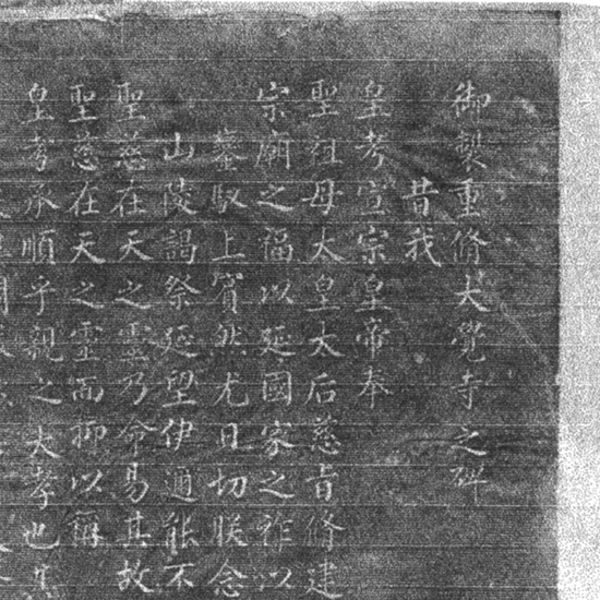 御製重脩大覺寺之碑
昔我
皇考宣宗皇帝奉
聖祖母太皇太后慈旨脩建
宗廟之福以延國家之祚以
鑾馭上賓然尤日切朕念
山陵謁祭延望伊邇能不
聖慈在天之靈乃命易其故
聖慈在天之靈而抑以稱
皇考承順乎親之大孝也